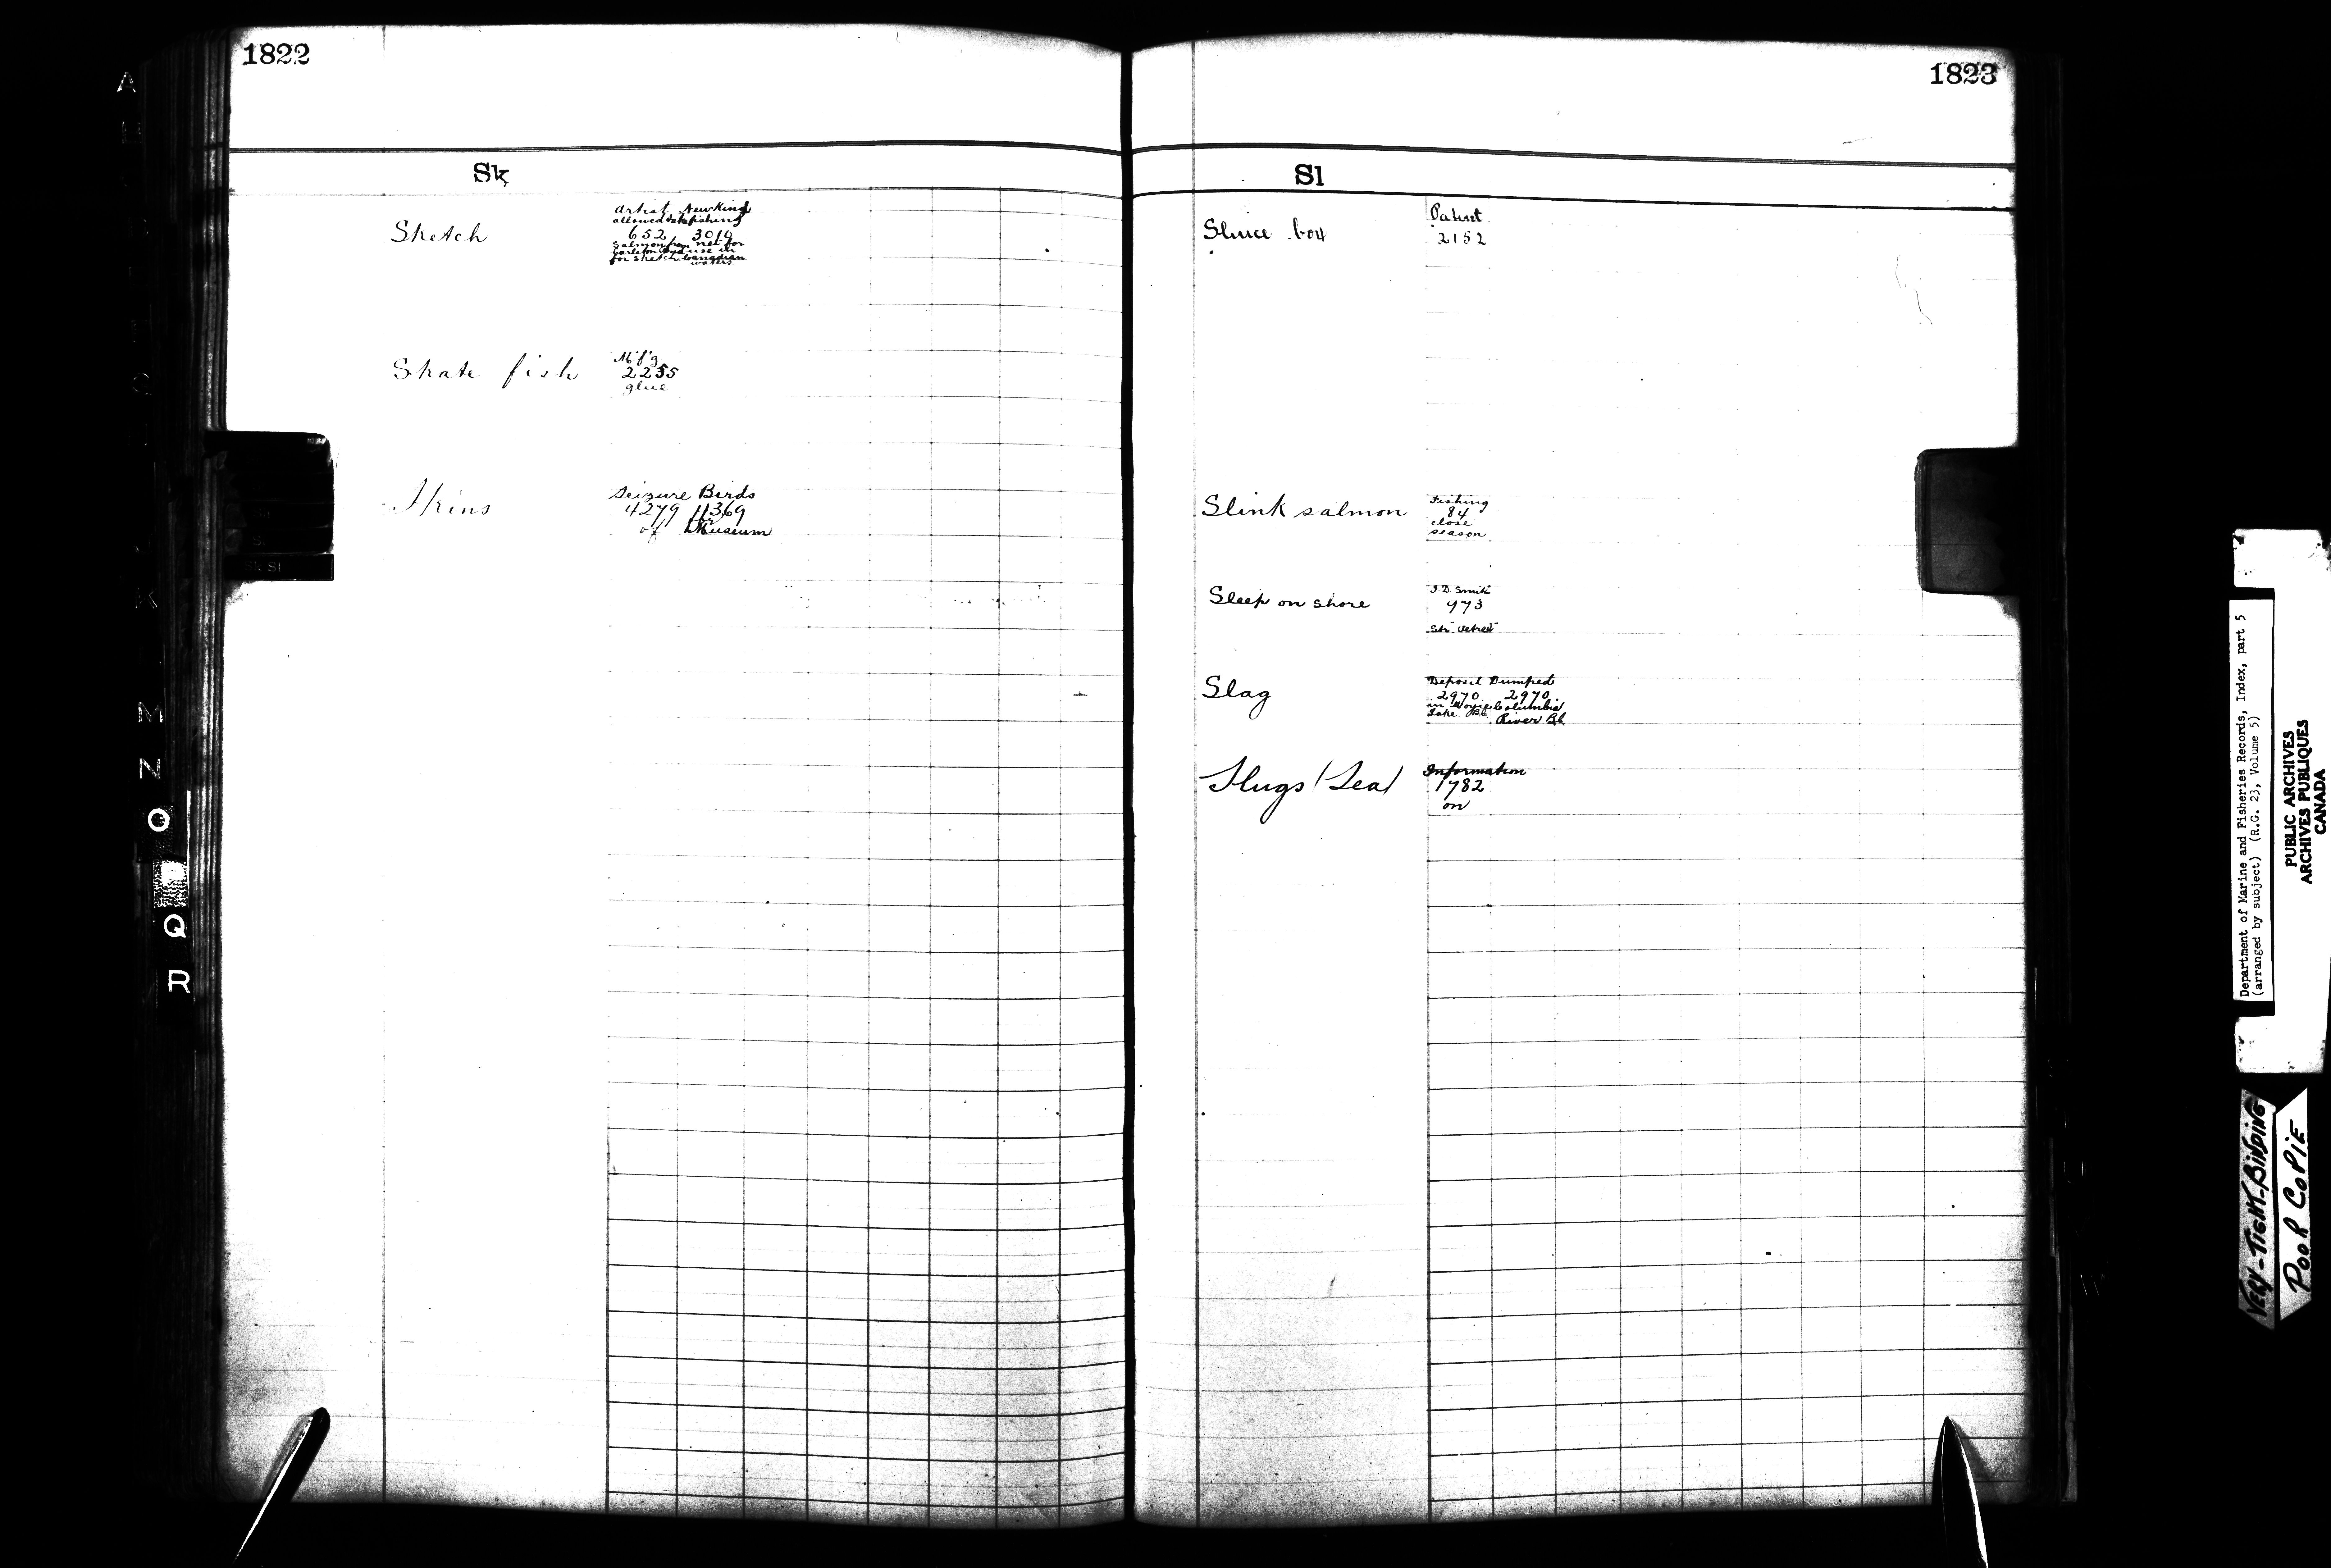 1822
Sk
Sketch
Artist New Kind
allowed take fishing
652 3010
salmon from net for
Carleton use in
for sketch Canadian
waters
Skate fish
M'f'g
2255
glue
Skins
Seizure Birds
4279 4369
of Museum
1823
Sl
Sluice box
Patent
2152
Slink salmon
Fishing
84
close
season
Sleep on shore
Smith
973
Str
Slag
Deposit Dumped
2970 2970
in Moyie Columbia
Lake B.C. River B.C.
Slugs (Sea)
Information
1782
on
A
M
N
O
Q
R
Sk Sl
Department of Marine and Fisheries Records, Index, part 5
(arranged by subject) (R.G. 23, Volume 5)
PUBLIC ARCHIVES
ARCHIVES PUBLIQUES
CANADA
VERY-TIGHT-BINDING
POOR COPIE